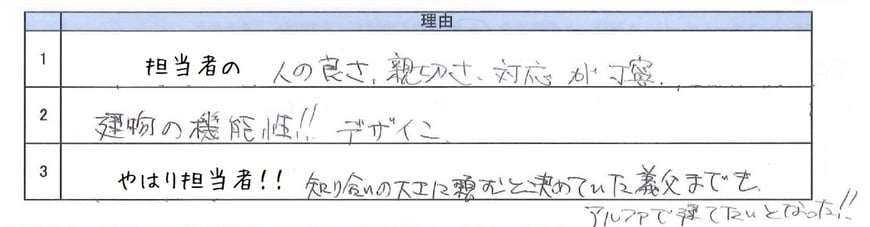 理由
1 担当者の 人の良さ、親切さ、対応が丁寧.
2 建物の機能性!! デザイン.
3 やはり担当者!! 知り合いの大工に頼むと決めていた義父までも.
アルファで建てたいとなった!!